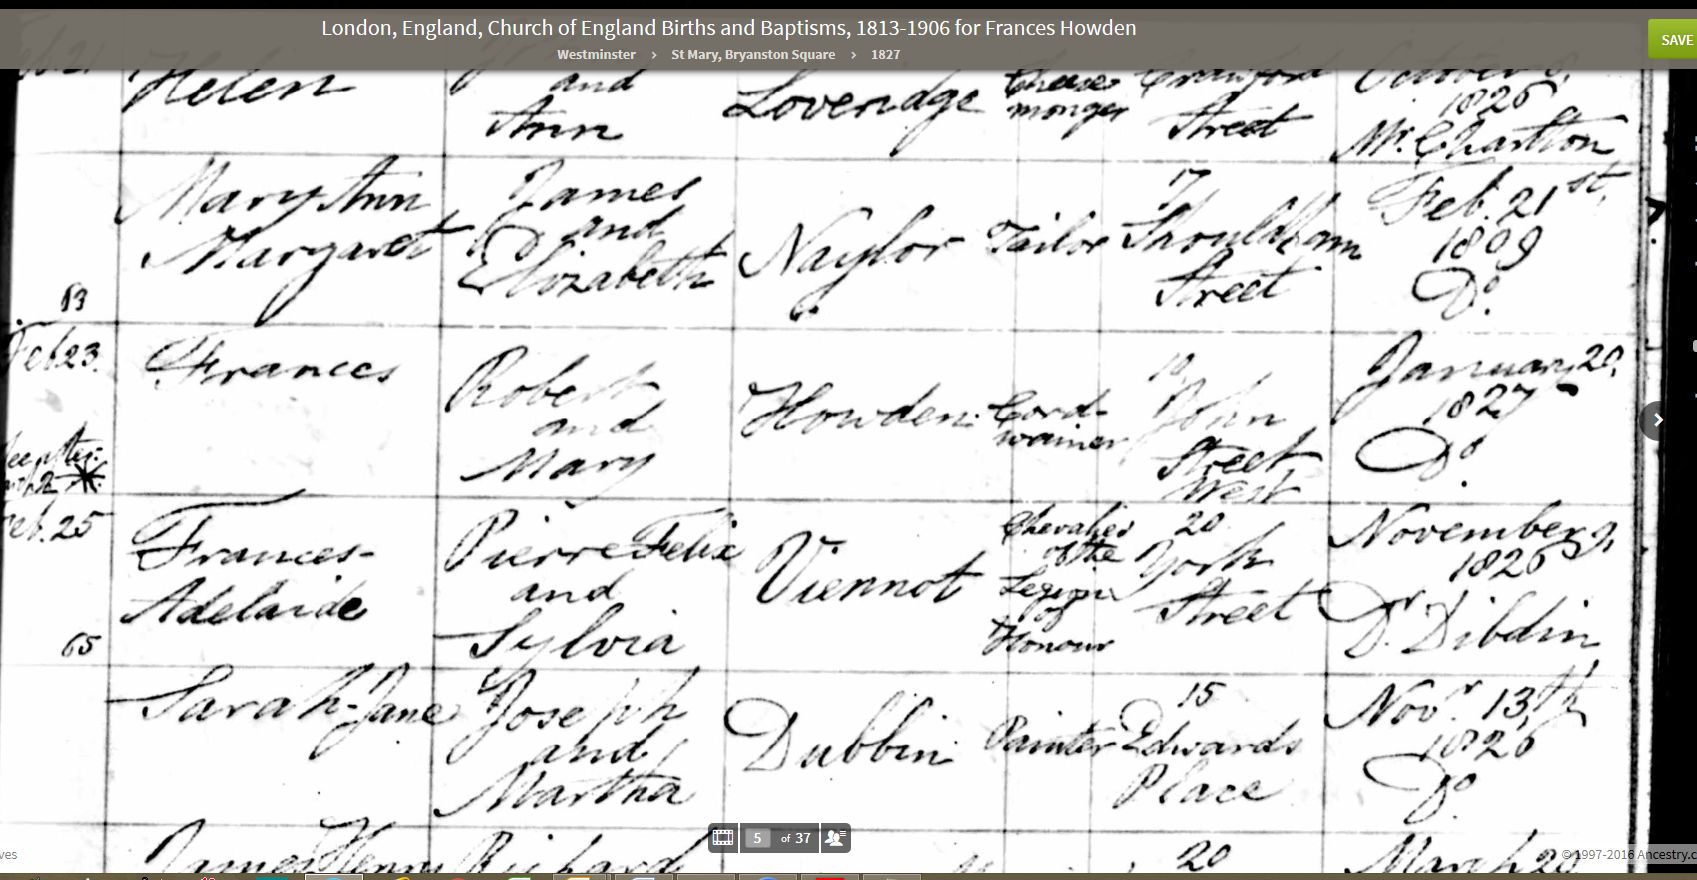 London, England, Church of England Births and Baptisms, 1813-1906 for Frances Howden
SAVE
Westminster > St Mary, Bryanston Square > 1827
Helen
and
Ann
Loveridge
Cheese
monger
Crawford
Street
October
1826
Mr. Charlton
Mary Ann
Margaret
James
and
Elizabeth
Naylor
Tailor
17
Shouldham
Street
Feb. 21st,
1809
Do.
63
Feb 23.
Frances
Robert
and
Mary
Howden.
Cord-
wainer
10
John
Street
West
January 20,
1827
Do.
Feb. 25
Frances-
Adelaide
Pierre Felix
and
Sylvia
Viennot
Chevalier
of the
Legion
of
Honour
20
York
Street
November 9,
1826
Dr. Dibdin
65
Sarah-Jane
Joseph
and
Martha
Dubbin
Painter
15
Edwards
Place
Novr. 13th,
1826
Do
James Henry
Richard
20
March 24
5 of 37
ves
© 1997-2016 Ancestry.c